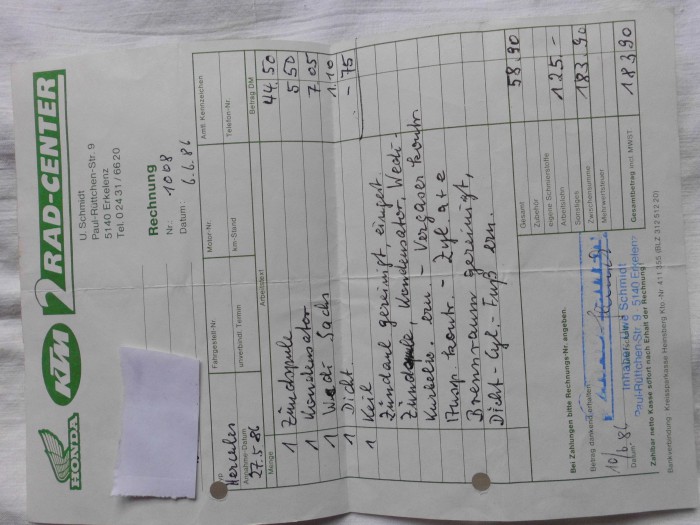 HONDA KTM 2RAD-CENTER
U. Schmidt
Paul-Rüttchen-Str. 9
5140 Erkelenz
Tel. 0 24 31 / 66 20
Rechnung
Nr.: 1008
Datum: 6.6.86
Typ Fahrgestell-Nr. Motor-Nr. Amtl. Kennzeichen
Hercules
Annahme-Datum unverbindl. Termin km-Stand Telefon-Nr.
27.5.86
Menge Arbeitstext Betrag DM
1 Zündspule 44,50
1 Kondensator 5,50
1 Wedi Sachs 7,05
1 Dicht 1,10
1 Keil -75
Zündanl gereinigt, eingest.
Zündspule, Kondensator, Wedi-
Kurbelw. ern. - Vergaser kontr.
Ansp. kontr. - Zyl ate
Brennraum gereinigt,
Dicht-Cyl.-Fuß ern.
Gesamt 58,90
Zubehör
eigene Schmierstoffe
Arbeitslohn 125,-
Sonstiges
Zwischensumme 183,90
Mehrwertsteuer
Gesamtbetrag incl. MWST. 183,90
Bei Zahlungen bitte Rechnungs-Nr. angeben.
Betrag dankend erhalten:
10/6.86
Datum
Inhaber: Uwe Schmidt
Paul-Rüttchen-Str. 9 · 5140 Erkelenz
Zahlbar netto Kasse sofort nach Erhalt der Rechnung
Bankverbindung: Kreissparkasse Heinsberg Kto.-Nr. 411 355 (BLZ 312 512 20)